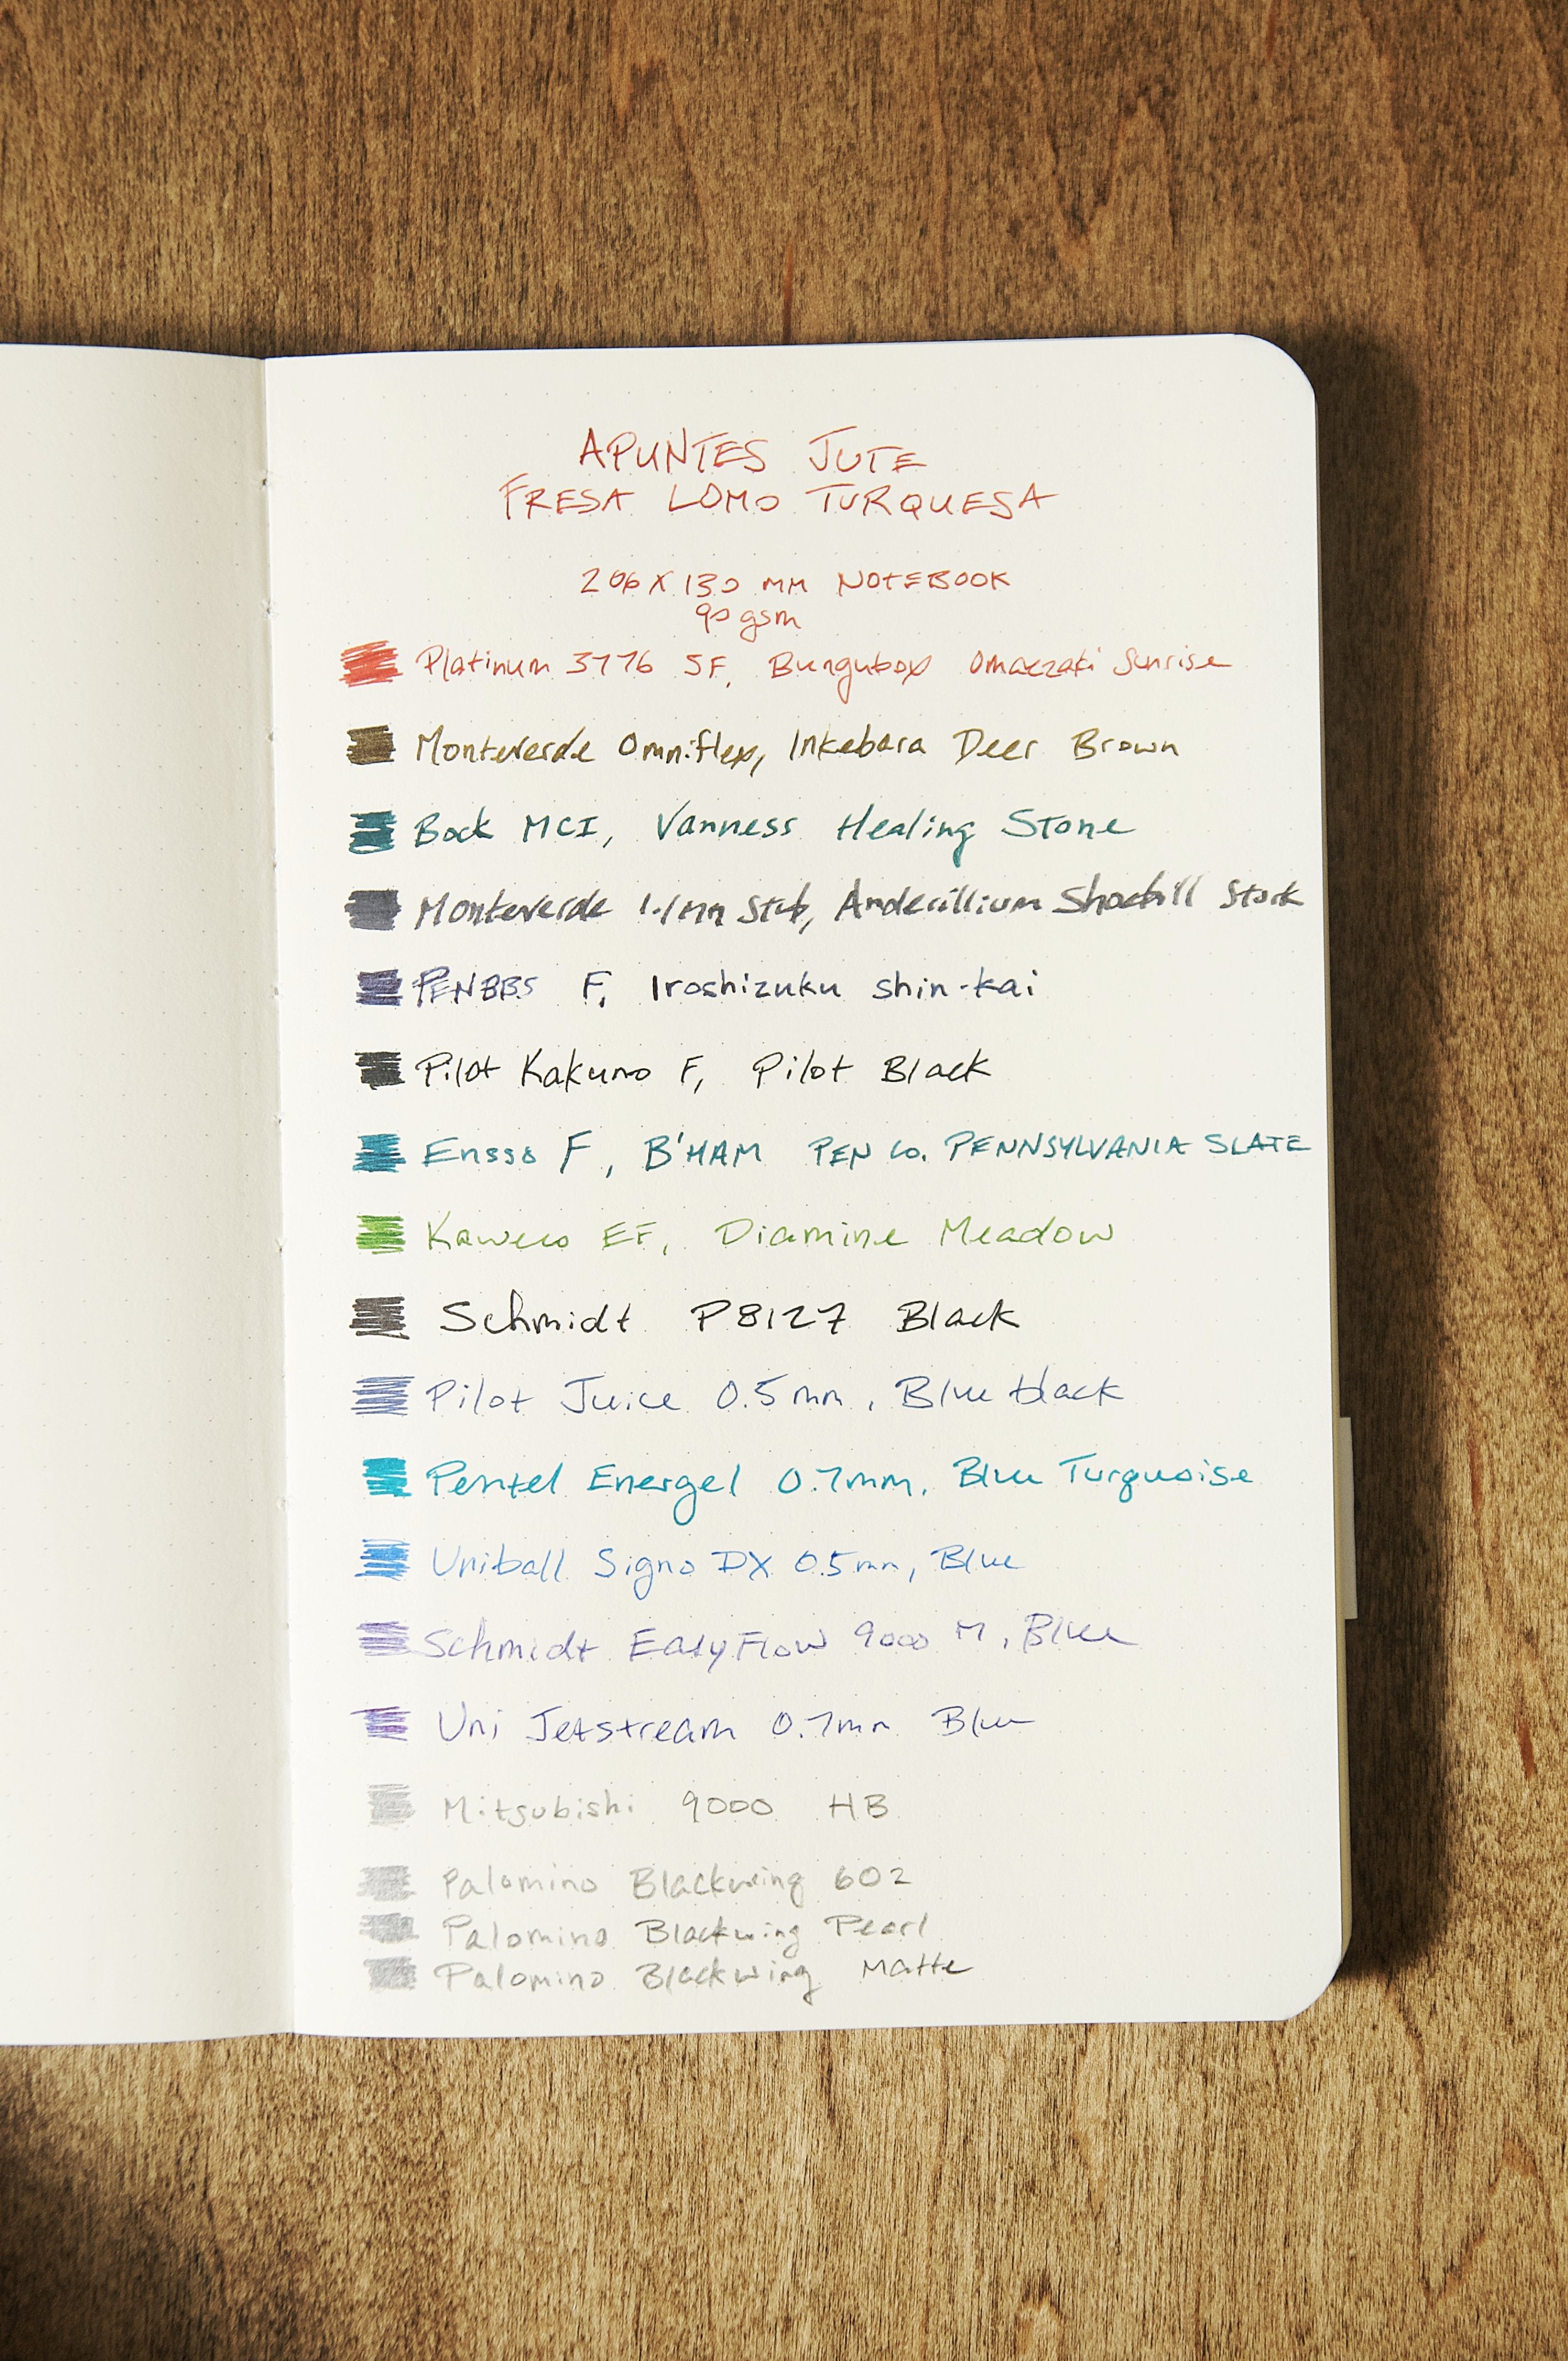 APUNTES JUTE
FRESA LOMO TURQUESA
206 X 130 MM NOTEBOOK
90 gsm
Platinum 3776 SF, Bungubox Omaezaki Sunrise
Monteverde Omniflex, Inkebara Deer Brown
Bock MCI, Vanness Healing Stone
Monteverde 1.1mm Stub, Anderillium Shoebill Stork
PENBBS F, Iroshizuku shin-kai
Pilot Kakuno F, Pilot Black
Ensso F, B'HAM PEN Co. PENNSYLVANIA SLATE
Kaweco EF, Diamine Meadow
Schmidt P8127 Black
Pilot Juice 0.5mm, Blue black
Pentel Energel 0.7mm, Blue Turquoise
Uniball Signo DX 0.5mm, Blue
Schmidt EasyFlow 9000 M, Blue
Uni Jetstream 0.7mm Blue
Mitsubishi 9000 HB
Palomino Blackwing 602
Palomino Blackwing Pearl
Palomino Blackwing Matte